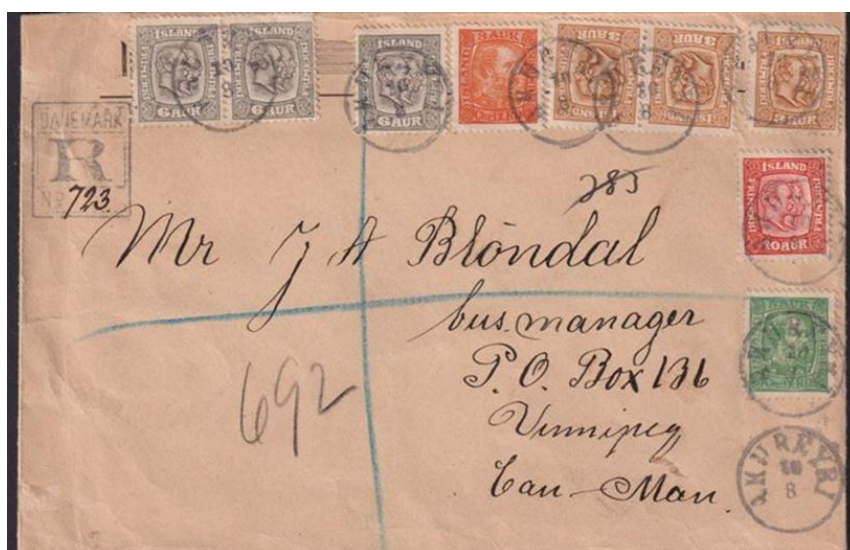 ÍSLAND
6 AUR
ÍSLAND
6 AUR
ÍSLAND
6 AUR
3 AUR
3 AUR
ÍSLAND
3 AUR
DANEMARK
R
No 723.
283
ÍSLAND
10 AUR
Mr J A Blöndal
bus. manager
P.O. Box 136
Vinnipeg
Can - Man.
692
AKUREYRI
20
8